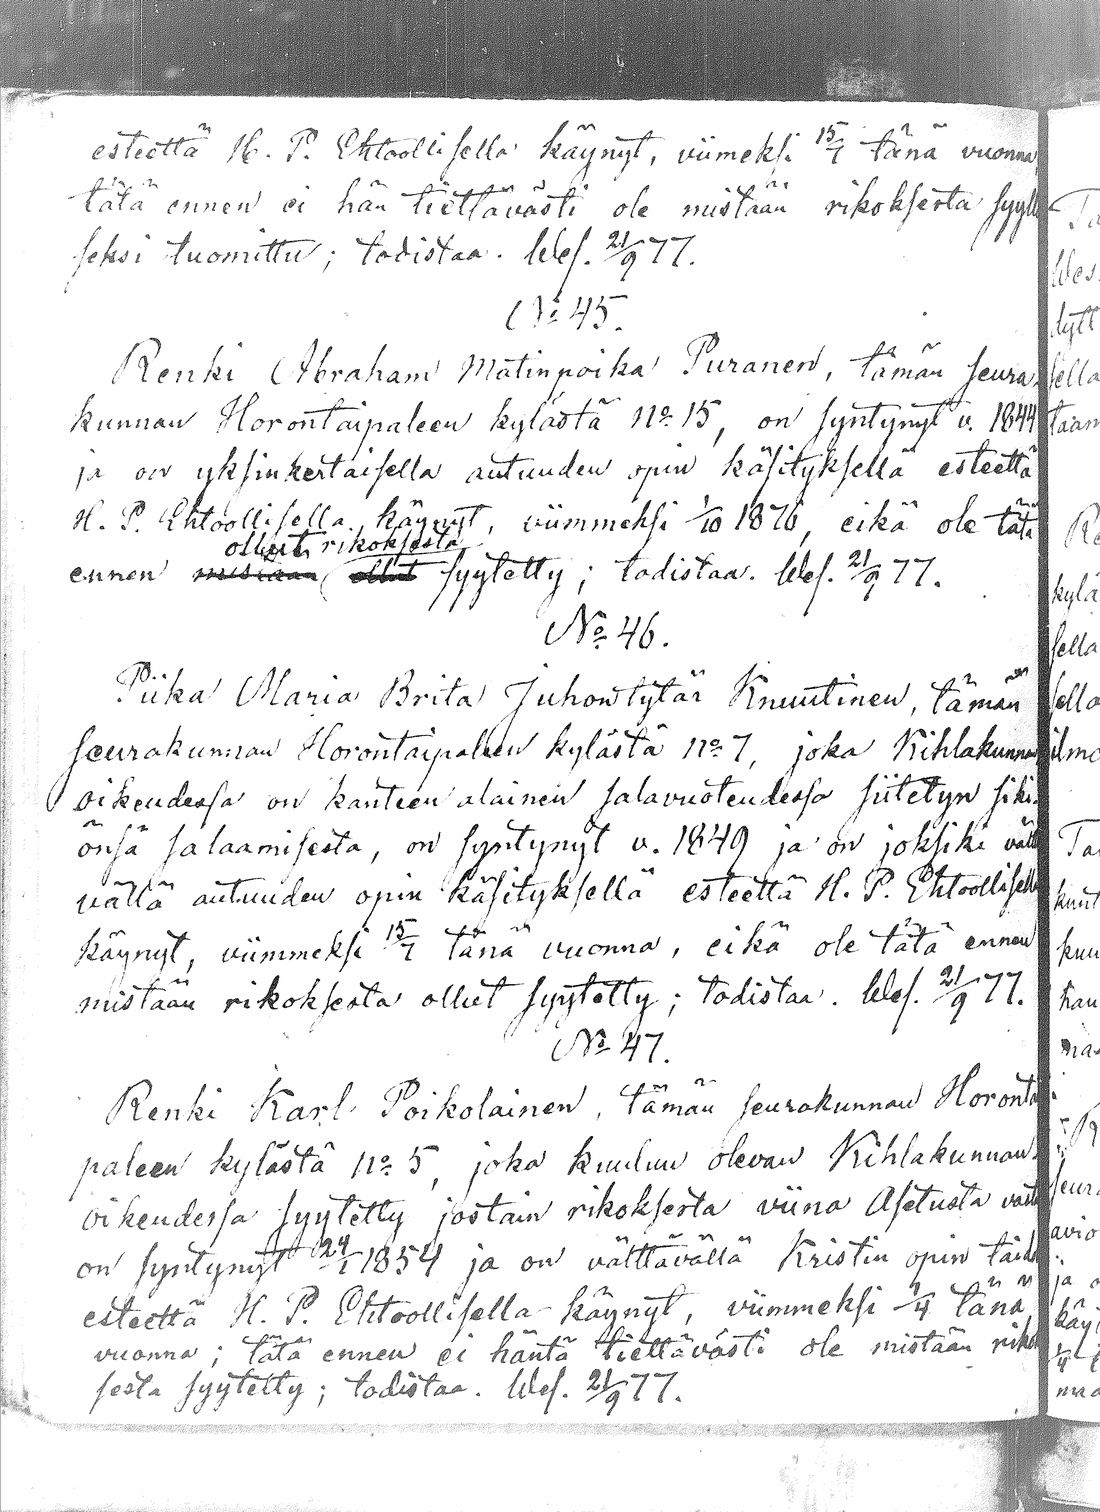 esteettä H. P. Ehtoollisella käynyt, viimeksi 15/7 tänä vuonna,
tätä ennen ei hän tiettävästi ole mistään rikoksesta syyl-
seksi tuomittu; todistaa. Wes. 21/9 77.
No 45.
Renki Abraham Matinpoika Puranen, tämän seura-
kunnan Horontaipaleen kylästä no 15, on syntynyt v. 1844
ja on yksinkertaisella autuuden opin käsityksellä esteettä
H. P. Ehtoollisella käynyt, viimmeksi 1/10 1876, eikä ole tätä
ollut rikoksesta
ennen mistään ollut syytetty; todistaa. Wes. 21/9 77.
No 46.
Piika Maria Brita Juhontytär Knuutinen, tämän
seurakunnan Horontaipaleen kylästä no 7, joka Kihlakunnan
oikeudessa on kanteen alainen salavuoteudessa siitetyn siki-
önsä salaamisesta, on syntynyt v. 1849 ja on joksiki vält
vällä autuuden opin käsityksellä esteettä H. P. Ehtoollisella
käynyt, viimmeksi 15/7 tänä vuonna, eikä ole tätä ennen
mistään rikoksesta ollut syytetty; todistaa. Wes. 21/9 77.
No 47.
Renki Karl Poikolainen, tämän seurakunnan Horontai
paleen kylästä no 5, joka kuuluu olevan Kihlakunnan
oikeudessa syytetty jostain rikoksesta viina Asetusta vast
on syntynyt 24/1 1854 ja on välttävällä Kristin opin taido
esteettä H. P. Ehtoollisella käynyt, viimmeksi 1/4 tänä
vuonna; tätä ennen ei häntä tiettävästi ole mistään rikok
sesta syytetty; todistaa. Wes. 21/9 77.